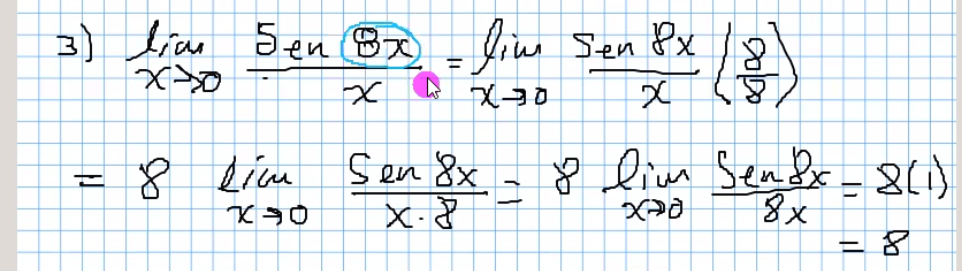 3) lim x→0 Sen 8x / x = lim x→0 Sen 8x / x (8/8)
= 8 lim x→0 Sen 8x / x·8 = 8 lim x→0 Sen 8x / 8x = 8(1)
= 8